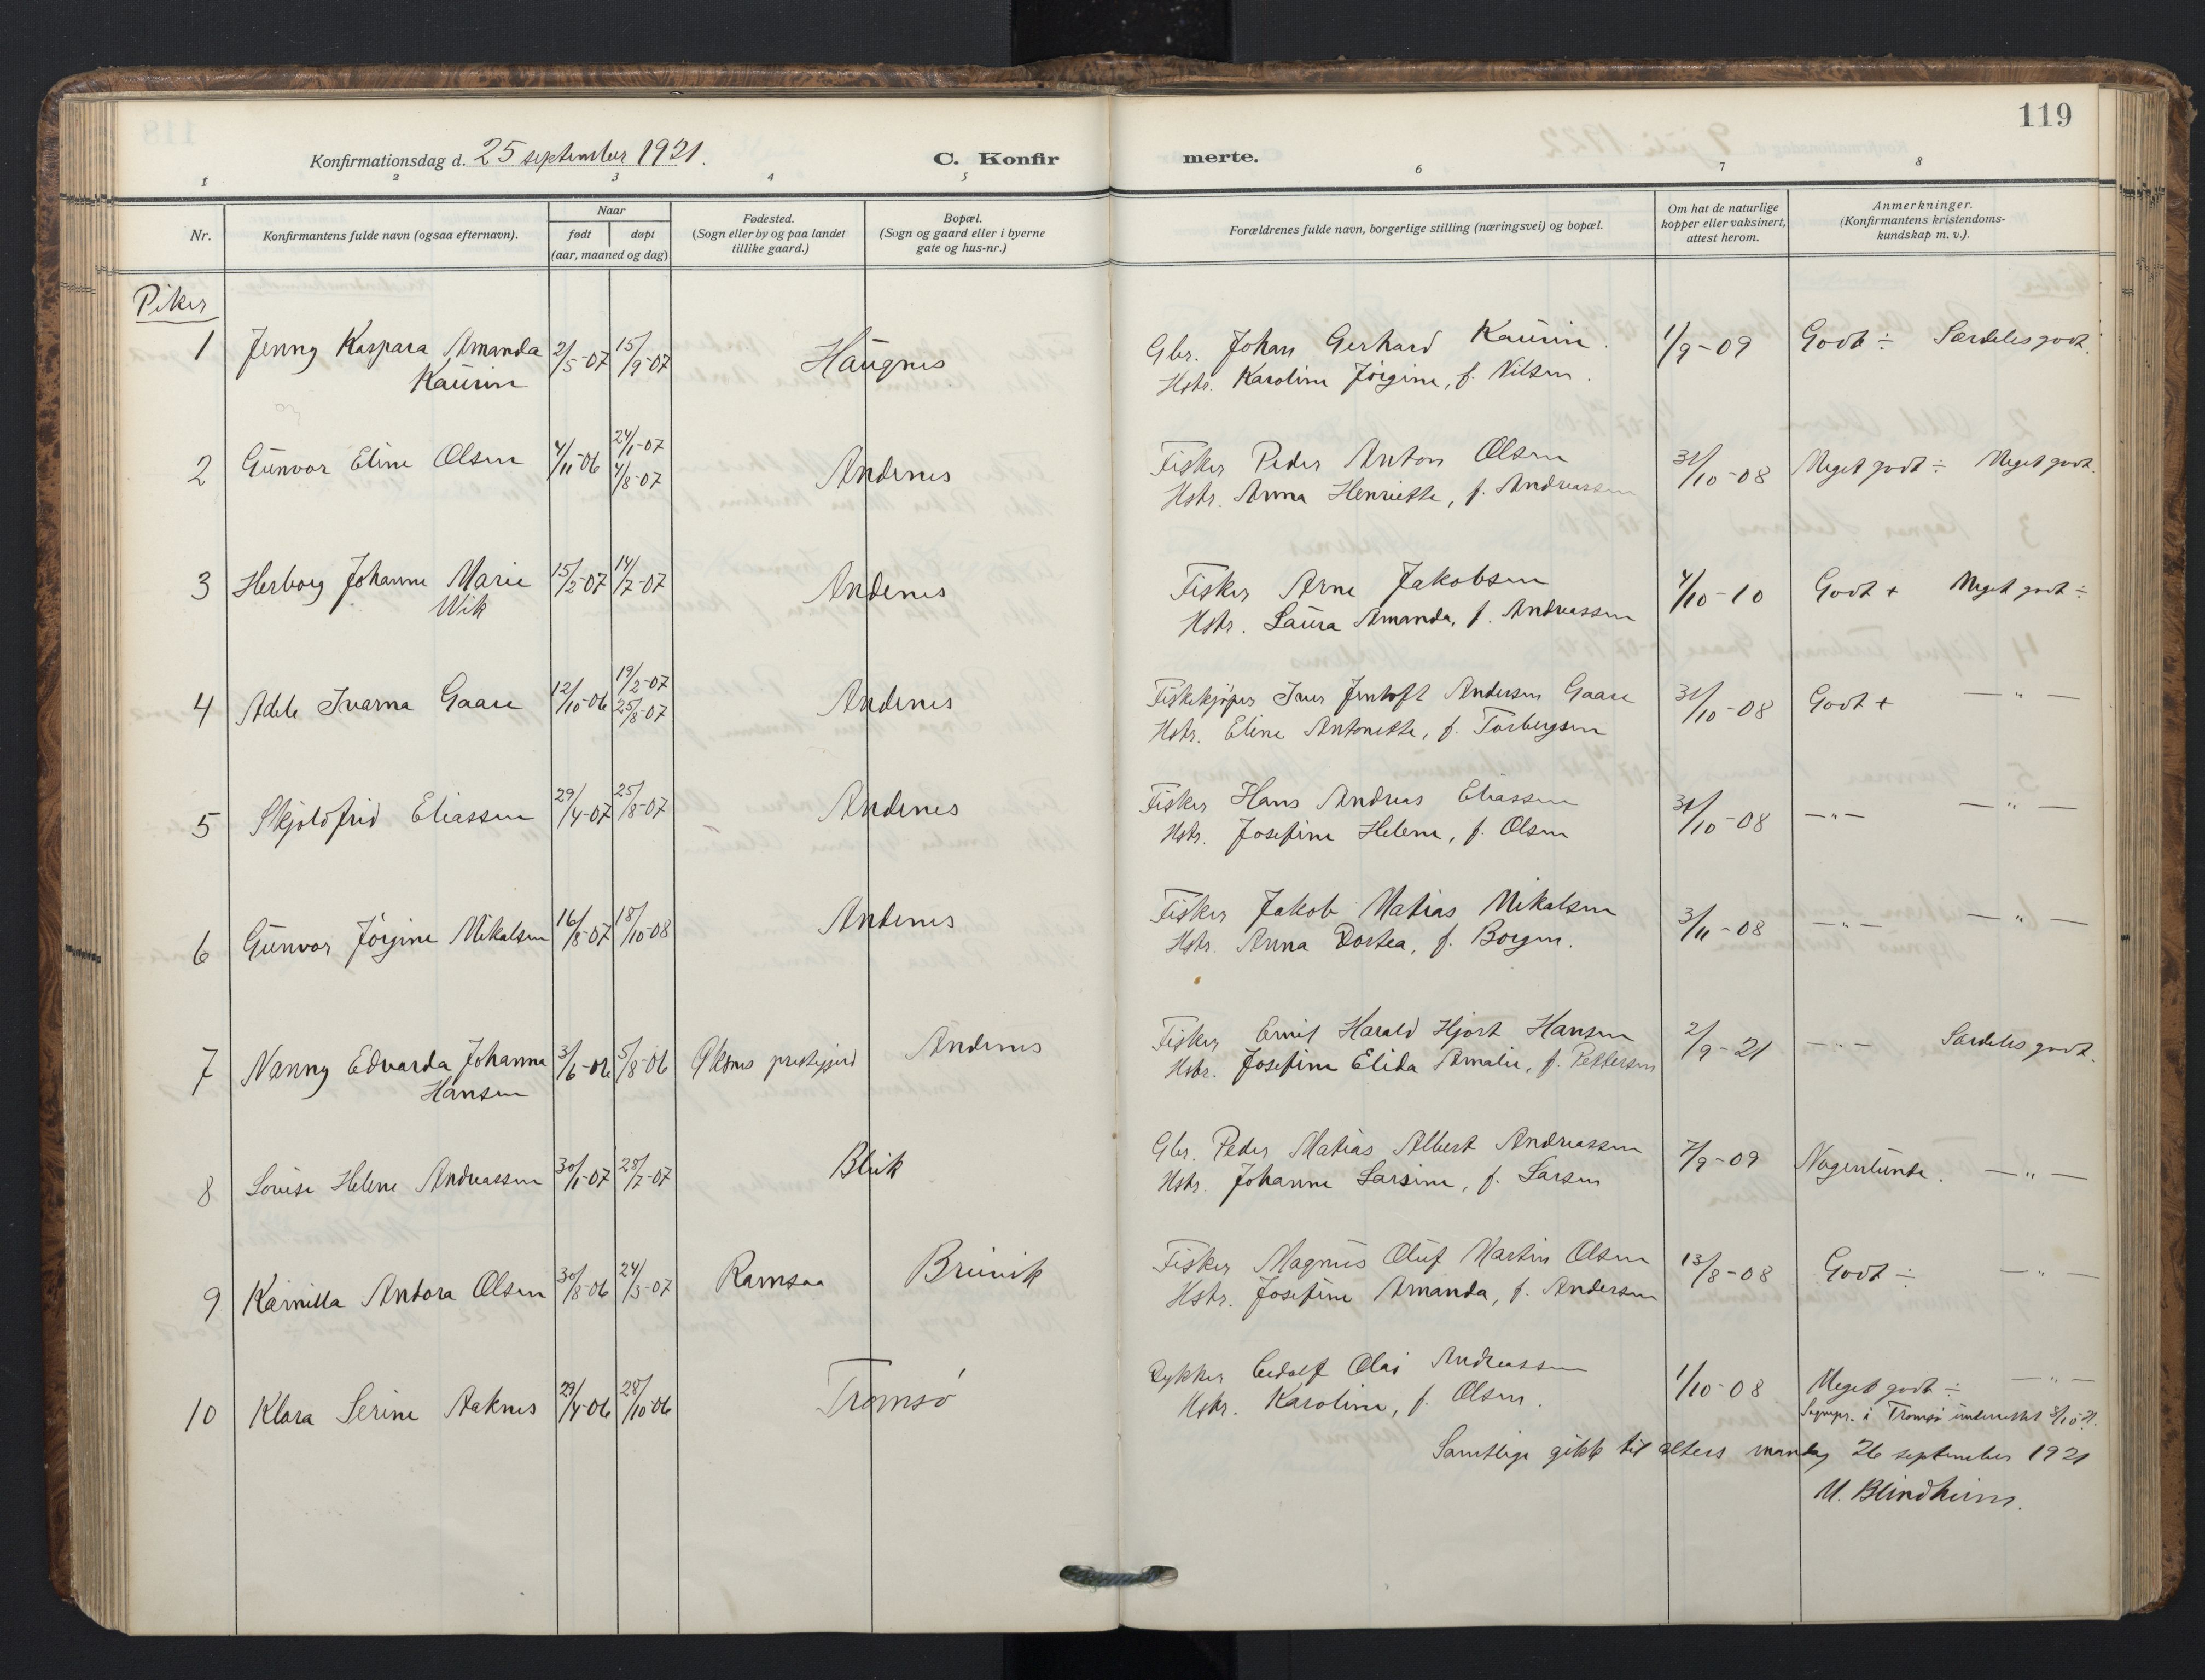 119
Konfirmationsdag d. 25 september 1921.
C. Konfir
merte.
1 2 3 4 5 6 7 8
Nr.
Konfirmantens fulde navn (ogsaa efternavn).
Naar
født
døpt
(aar, maaned og dag)
Fødested.
(Sogn eller by og paa landet
tillike gaard.)
Bopæl.
(Sogn og gaard eller i byerne
gate og hus-nr.)
Forældrenes fulde navn, borgerlige stilling (næringsvei) og bopæl.
Om hat de naturlige
kopper eller vaksinert,
attest herom.
Anmerkninger.
(Konfirmantens kristendoms-
kundskap m. v.).
Piker
1 Jenny Kaspara Amanda 2/5-07 15/9-07 Haugnes Gbr. Johan Gerhard Kaurin. 1/9-09 Godt ÷ Særdeles godt.
Kaurin Hstr. Karoline Jørgine, f. Nilsen.
2 Gunvor Eline Olsen 4/11-06 24/1-07 Andenes Fisker Peder Anton Olsen 31/10-08 Meget godt ÷ Meget godt.
4/8-07 Hstr. Anna Henriette, f. Andreassen
3 Herborg Johanne Marie 15/2-07 14/7-07 Andenes Fisker Arne Jakobsen 4/10-10 Godt + Meget godt ÷
Wik Hstr. Laura Amanda, f. Andreassen
4 Adele Ivarna Gaare 12/10-06 19/2-07 Andenes Fiskekjøper Iver Jentoft Andersen Gaare 31/10-08 Godt + — " —
25/8-07 Hstr. Eline Antonette, f. Torbergsen
5 Skjoldfrid Eliassen 29/4-07 25/8-07 Andenes Fisker Hans Andreas Eliassen 31/10-08 — " — — " —
Hstr. Josefine Helene, f. Olsen
6 Gunvor Jørgine Mikalsen 16/8-07 18/10-08 Andenes Fisker Jakob Matias Mikalsen 3/11-08 — " — — " —
Hstr. Anna Dortea, f. Borgen.
7 Nanny Edvarda Johanna 3/6-06 5/8-06 Øksnes prestegjeld Andenes Fisker Emil Harald Hjort Hansen 2/9-21 — " — Særdeles godt.
Hansen Hstr. Josefine Elida Amalie, f. Pettersen
8 Lovise Helene Andreassen 30/1-07 28/7-07 Bleik Gbr. Peder Matias Albert Andreassen 7/9-09 Nogenlunde. — " —
Hstr. Johanne Larsine, f. Larsen
9 Kamilla Andora Olsen 30/8-06 24/3-07 Ramsaa Breivik Fisker Magnus Oluf Martin Olsen 13/8-08 Godt ÷ — " —
Hstr. Josefine Amanda, f. Andersen
10 Klara Serine Aaknes 29/4-06 28/10-06 Tromsø Dykker Olai Andreassen 1/10-08 Meget godt ÷ — " —
Hstr. Karoline, f. Olsen. Sognepr. i Tromsø underrettet 3/10-21.
Samtlige gikk til alters mandag 26 september 1921
M. Blindheim.